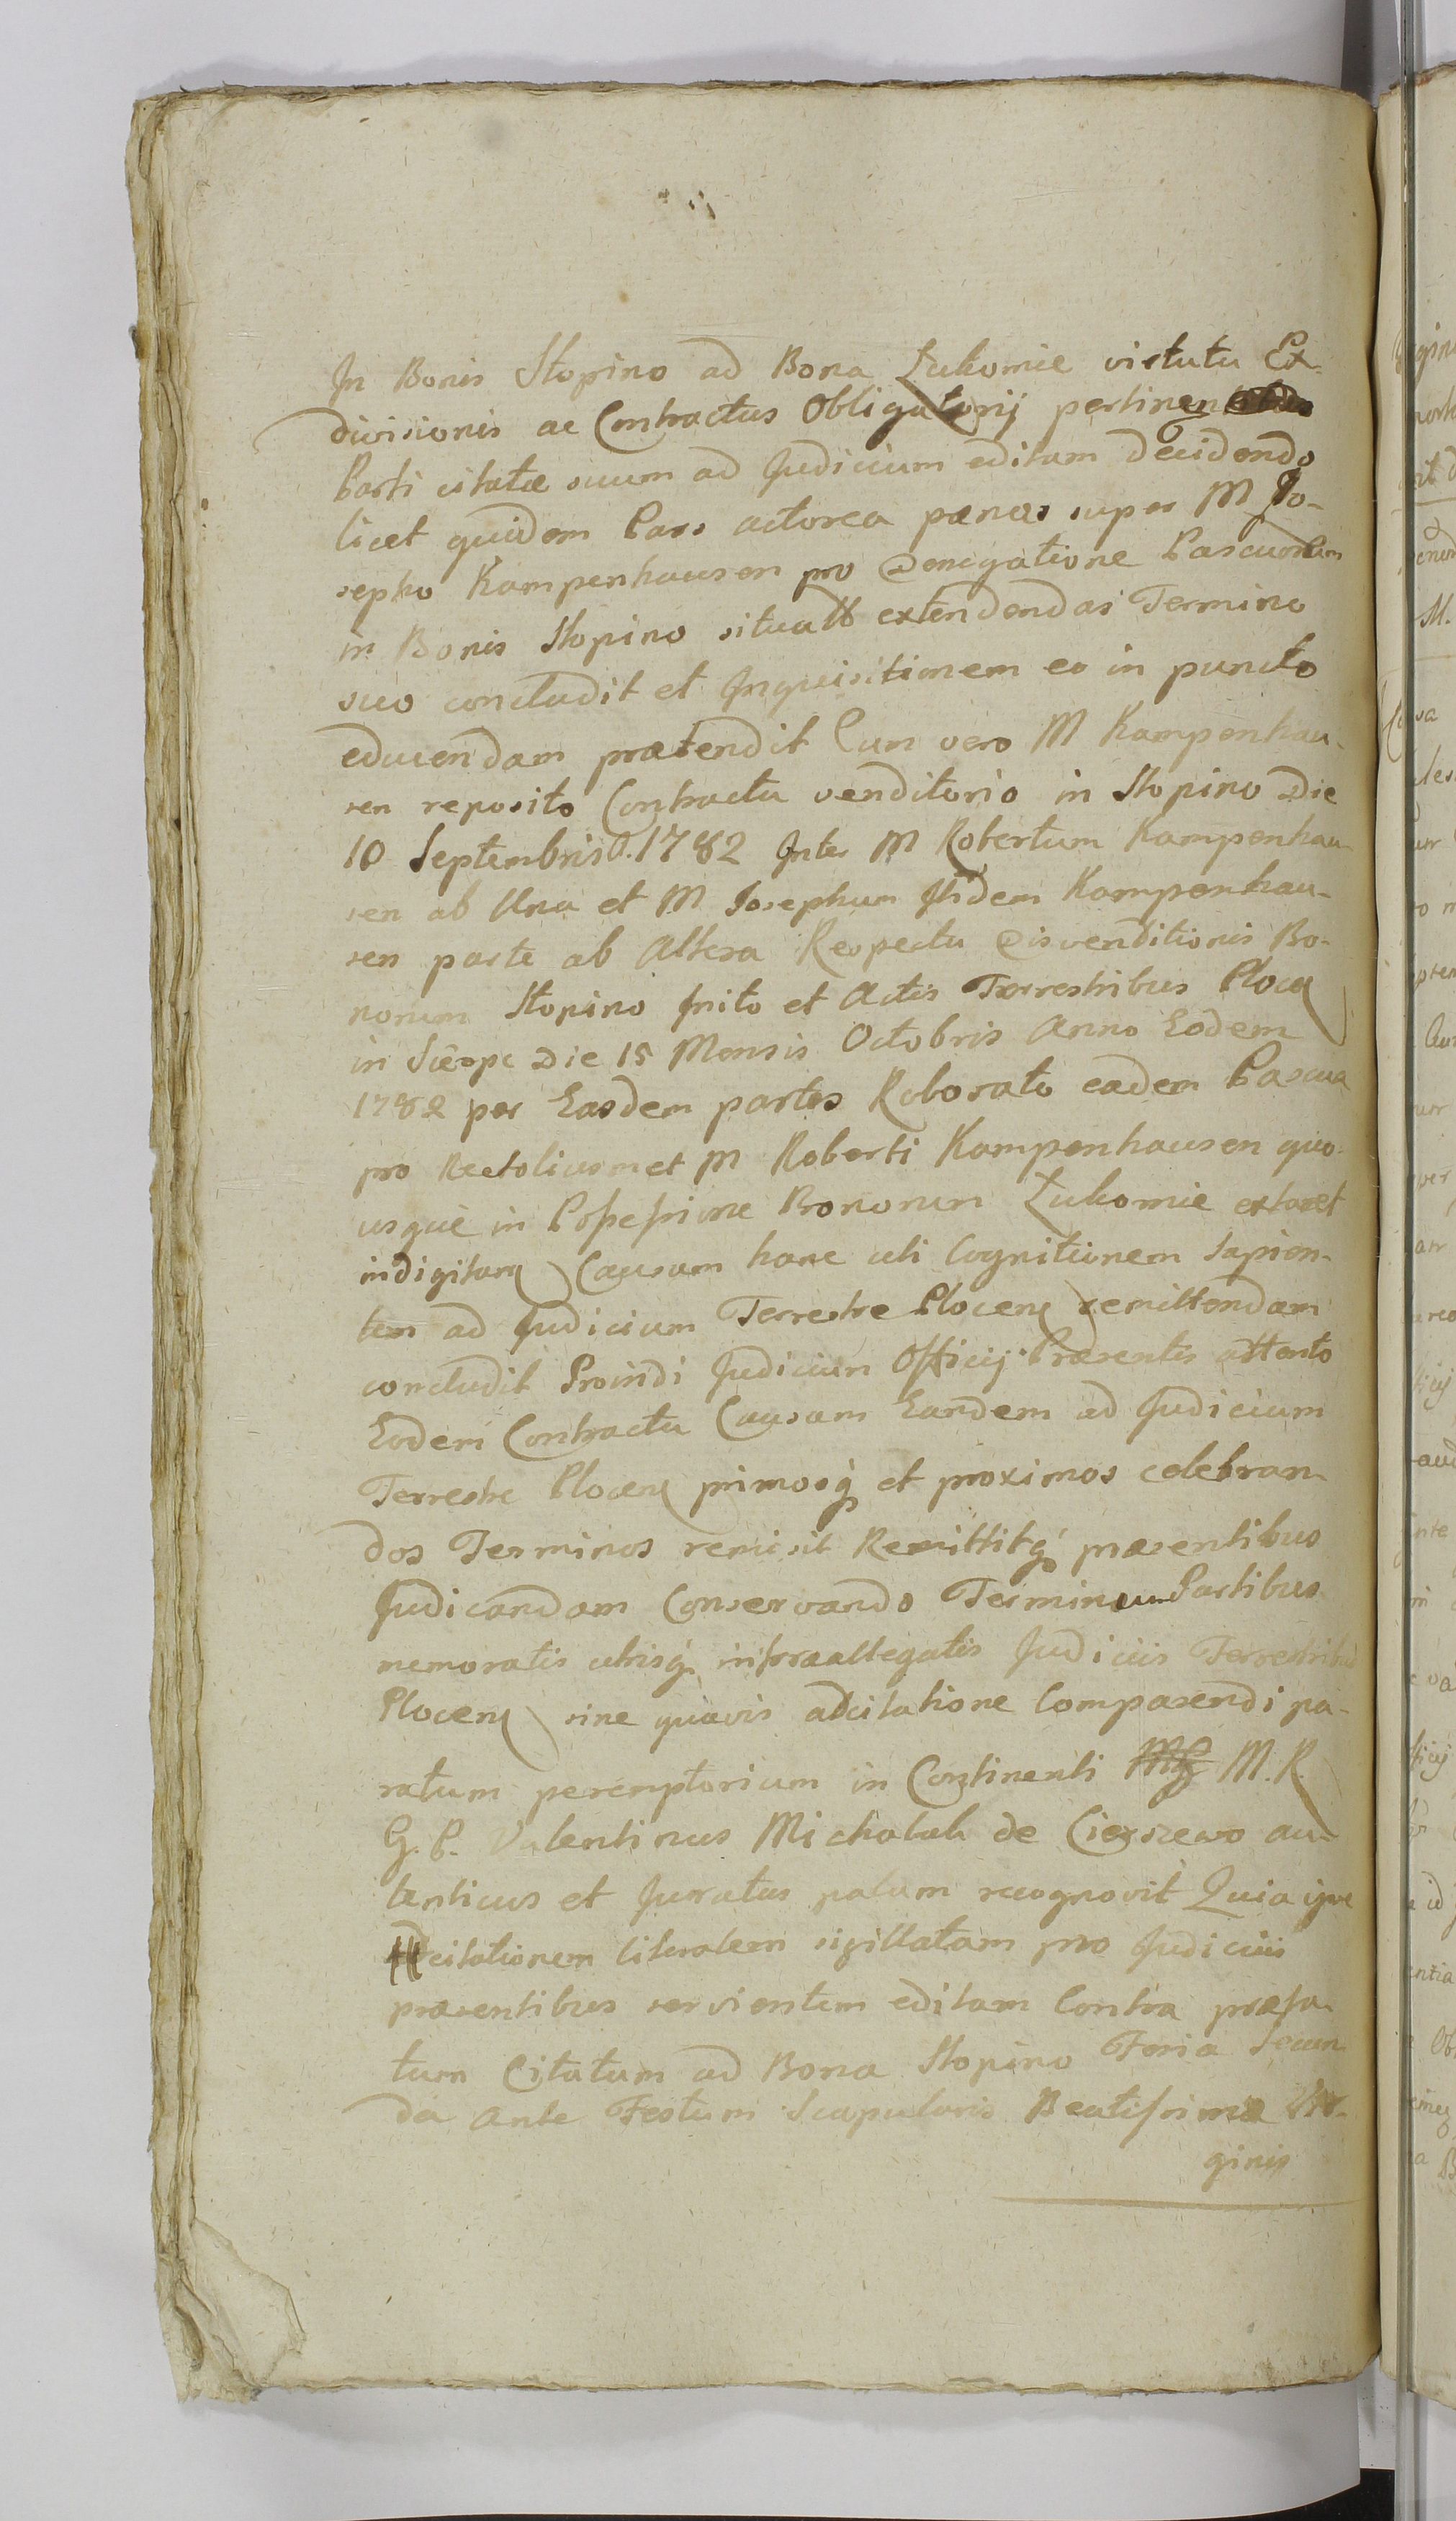 In Bonis Slopino ad Bona Lukomie virtutu Ex-
divisionis ac Contractus Obligatorij pertinen
Parti citatæ suum ad Judicium editam Decidendo
licet quidem Pars actorea pænas super M Jo-
sepho Kampenhausen pro Denegatione Pascuorum
in Bonis Slopino situatt extendendas Termino
suo concludit et Inquisitionem eo in puncto
educendam prætendit Cum vero M Kampenhau-
sen reposito Contractu venditorio in Slopino Die
10 Septembris 1782 Inter M Robertum Kampenhau-
sen ab Una et M Josephum Itidem Kampenhau-
sen parte ab Altera Respectu Disvenditionis Bo-
norum Slopino Inito et Actis Terrestribus Plocen
in Sierpc Die 15 Mensis Octobris Anno Eodem
1782 per Easdem partes Roborato eadem Pascua
pro met M Roberti Kampenhausen quo-
usque in Possessione Bonorum Lukomie extaret
indigitan Causam hanc uti Cognitionem sapien-
tem ad Judicium Terrestre Plocen remittendam
concludit Proindi Judicium Officij Præsentis attento
Eodem Contractu Causam Eandem ad Judicium
Terrestre Plocen primosq et proximos celebran-
dos Terminos remisit Remittitq præsentibus
Judicandam Conservando Terminum Partibus
memoratis utrisq infraallegatis Judiciis Terrestribus
Plocen sine quavis adcitatione Comparendi pa-
ratum peremptorium in Continenti M.R.
G. P. Valentinus Michalak de Cierszewo au-
tenticus et Juratus palam recognovit Quia ipse
citationem literalem sigillatam pro Judiciis
præsentibus servientem editam Contra præfa-
tum Citatum ad Bona Slopino Feria Secun-
da Ante Festum Scapularis Beatissimæ Vir-
ginis